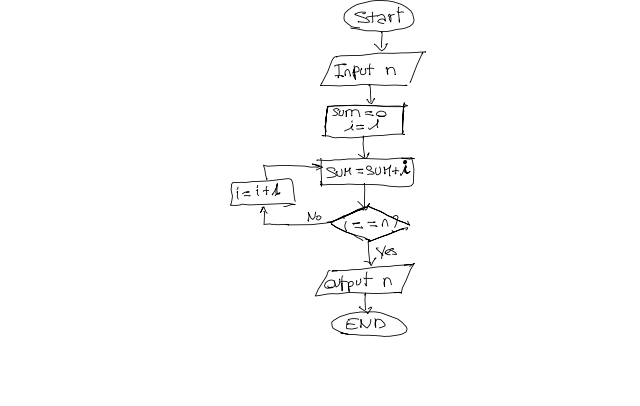 Start
Input n
sum=0
i=1
sum=sum+i
i=i+1
No
(==n)
Yes
output n
END